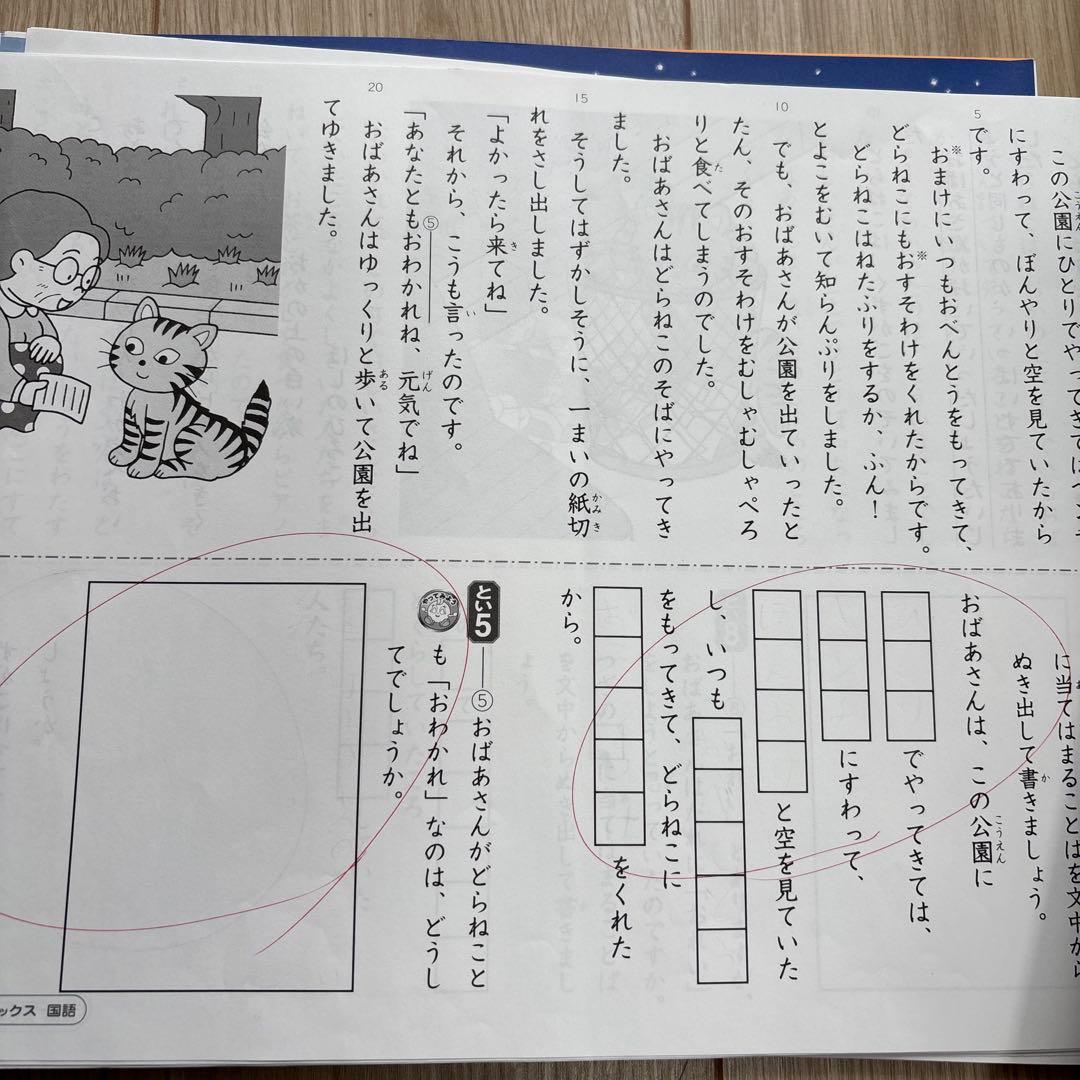 この公園にひとりでやってきてはベンチ
にすわって、ぼんやりと空を見ていたから
です。
おまけにいつもおべんとうをもってきて、
どらねこにもおすそわけをくれたからです。
どらねこはねたふりをするか、ふん！
とよこをむいて知らんぷりをしました。
でも、おばあさんが公園を出ていったと
たん、そのおすそわけをむしゃむしゃぺろ
りと食べてしまうのでした。
おばあさんはどらねこのそばにやってき
ました。
そうしてはずかしそうに、一まいの紙切
れをさし出しました。
「よかったら来てね」
それから、こうも言ったのです。
「あなたともおわかれね、元気でね」
おばあさんはゆっくりと歩いて公園を出
てゆきました。
5
10
15
20
⑤
に当てはまることばを文中から
ぬき出して書きましょう。
おばあさんは、この公園に
でやってきては、
にすわって、
と空を見ていた
し、いつも
をもってきて、どらねこに
をくれた
から。
とい5
やってみよう
⑤おばあさんがどらねこと
も「おわかれ」なのは、どうし
てでしょうか。
ックス 国語